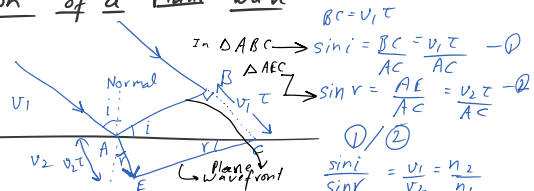 on of a Plane wave
BC = v₁τ
In △ABC → sin i = BC/AC = v₁τ/AC — ①
△AEC → sin r = AE/AC = v₂τ/AC — ②
①/②
sin i/sin r = v₁/v₂ = n₂/n₁
Normal
i
B
v₁τ
v₁
A
i
r
C
v₂
v₂τ
r
E
Plane
wavefront